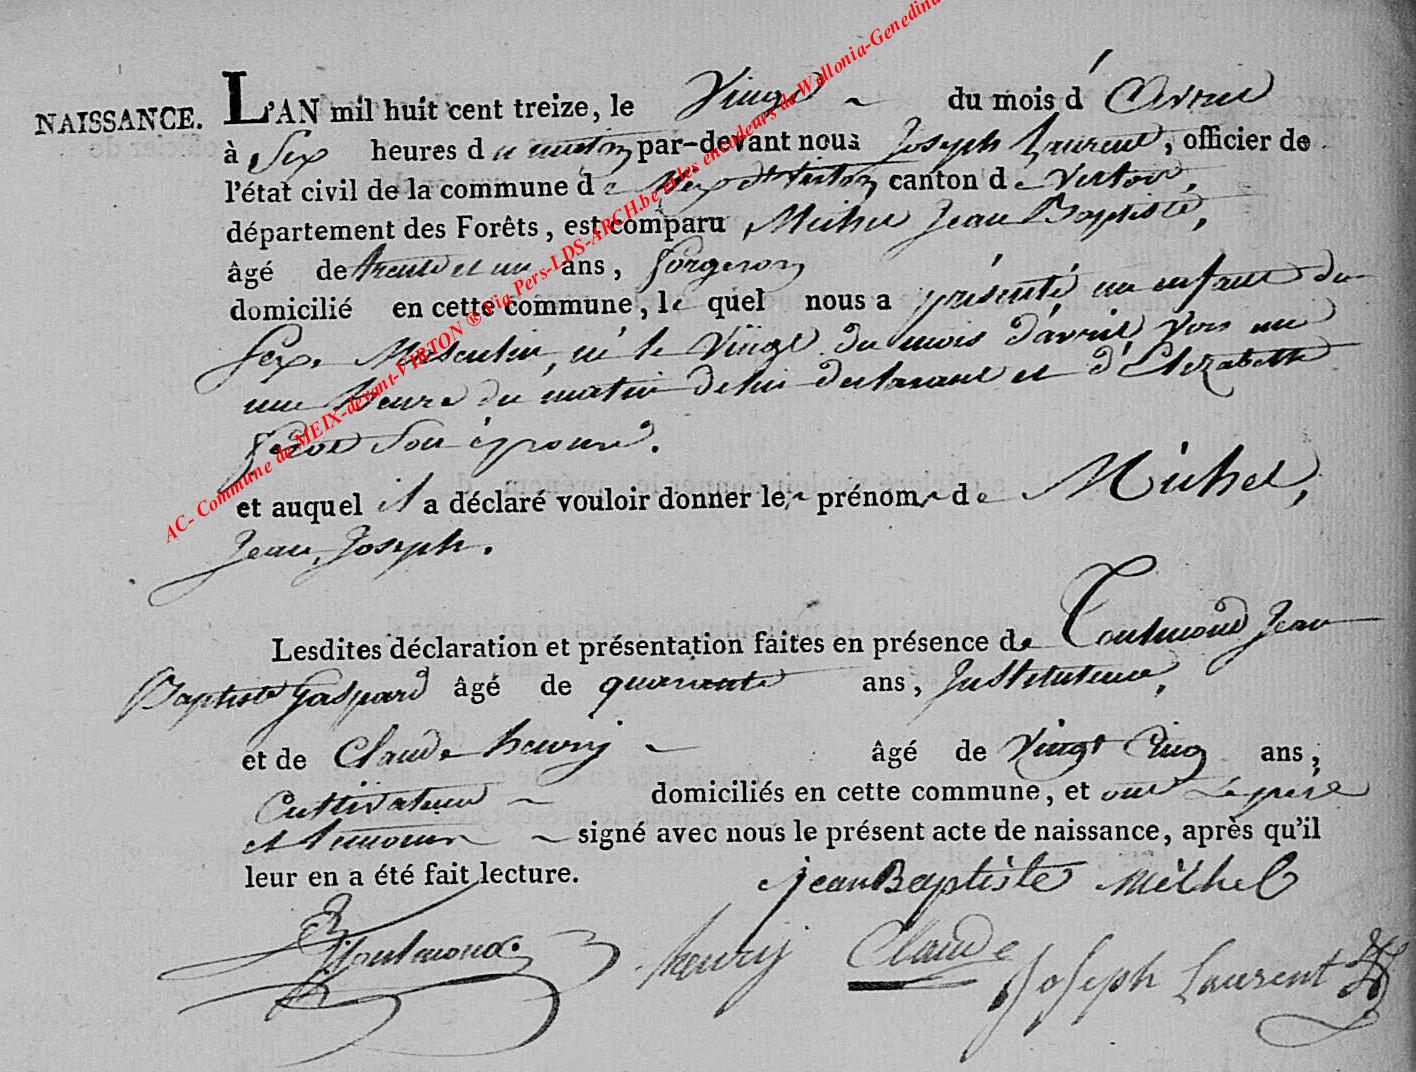 NAISSANCE. L'AN mil huit cent treize, le Vingt du mois d' Avril
à Six heures du matin par-devant nous Joseph Laurent, officier de
l'état civil de la commune de Meix dt Virton canton de Virton,
département des Forêts, est comparu Michel Jean Baptiste,
âgé de trente et un ans, forgeron
domicilié en cette commune, le quel nous a présenté un enfant du
Sexe Masculin, né le Vingt du mois d'avril, vers
une heure du matin de lui declarant et d'Elizabette
son épouse.
et auquel il a déclaré vouloir donner les prénoms de Michel,
Jean, Joseph.
Lesdites déclaration et présentation faites en présence de Toulmond Jean
Baptiste Gaspard âgé de quarante ans, Instituteur,
et de Claude henry âgé de Vingt Cinq ans,
Cultivateur domiciliés en cette commune, et ont Le père
et temoins signé avec nous le présent acte de naissance, après qu'il
leur en a été fait lecture. jean Baptiste Michel
Toulmond. henry Claude Joseph Laurent
AC- Commune de MEIX-devant-VIRTON ® Via Pers-LDS-ARCH.be et les encodeurs de Wallonia-Genedina